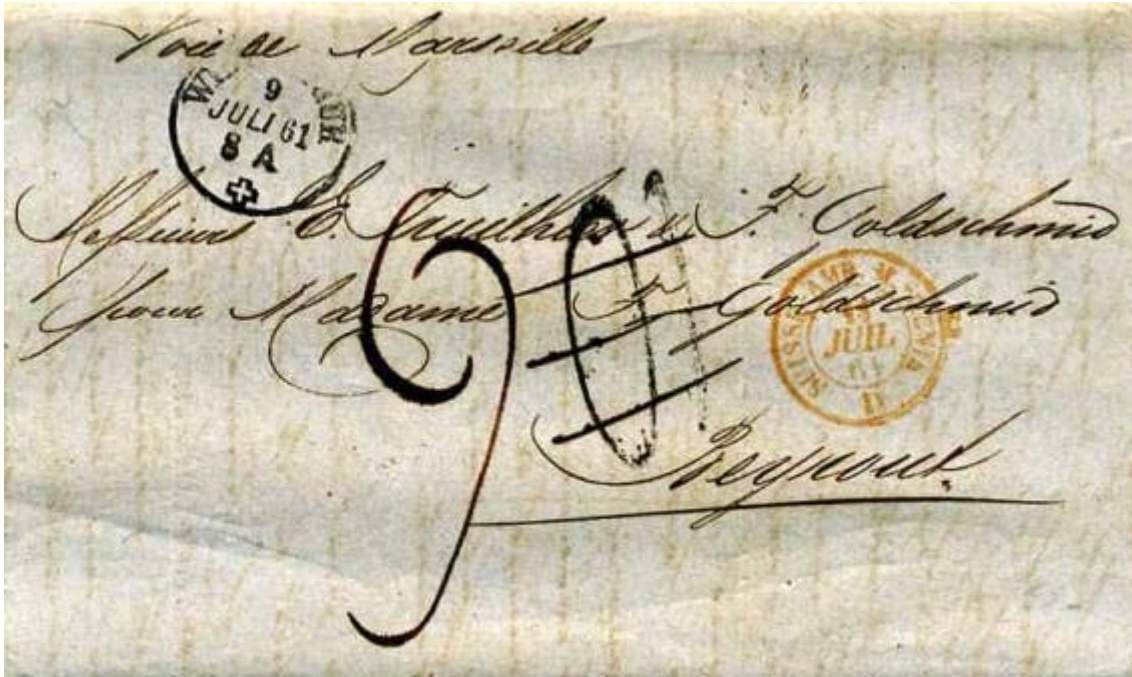 Voie de Marseille
9
JULI 61
8 A
Messieurs E. & Fr. Goldschmid
pour Madame Fr. Goldschmid
SUISSE AMB. M
JUIL
61
D
90
Beyrout.